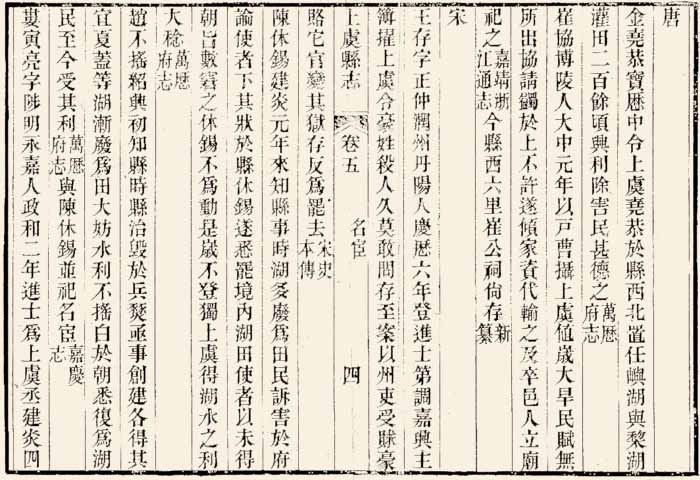 唐
金堯恭寶厯中令上虞堯恭於縣西北置任嶼湖與黎湖
灌田二百餘頃興利除害民甚德之萬厯府志
崔協博陵人大中元年以戸曹攝上虞値歲大旱民賦無
所出協請蠲於上不許遂傾家資代輸之及卒邑人立廟
祀之嘉靖浙江通志今縣西六里崔公祠尙存新纂
宋
王存字正仲潤州丹陽人慶厯六年登進士第調嘉興主
簿擢上虞令豪姓殺人久莫敢問存至案以州吏受賕豪
賂它官變其獄存反爲罷去宋史本傳
上虞縣志 卷五 名宦 四
陳休錫建炎元年來知縣事時湖多廢爲田民訴害於府
諭使者下其狀於縣休錫遂悉罷境內湖田使者以未得
朝旨數窘之休錫不爲動是歲不登獨上虞得湖水之利
大稔萬厯府志
趙不搖紹興初知縣時縣治毀於兵燹亟事創建各得其
宜夏蓋等湖漸廢爲田大妨水利不搖白於朝悉復爲湖
民至今受其利萬厯府志與陳休錫並祀名宦嘉慶志
婁寅亮字陟明永嘉人政和二年進士爲上虞丞建炎四